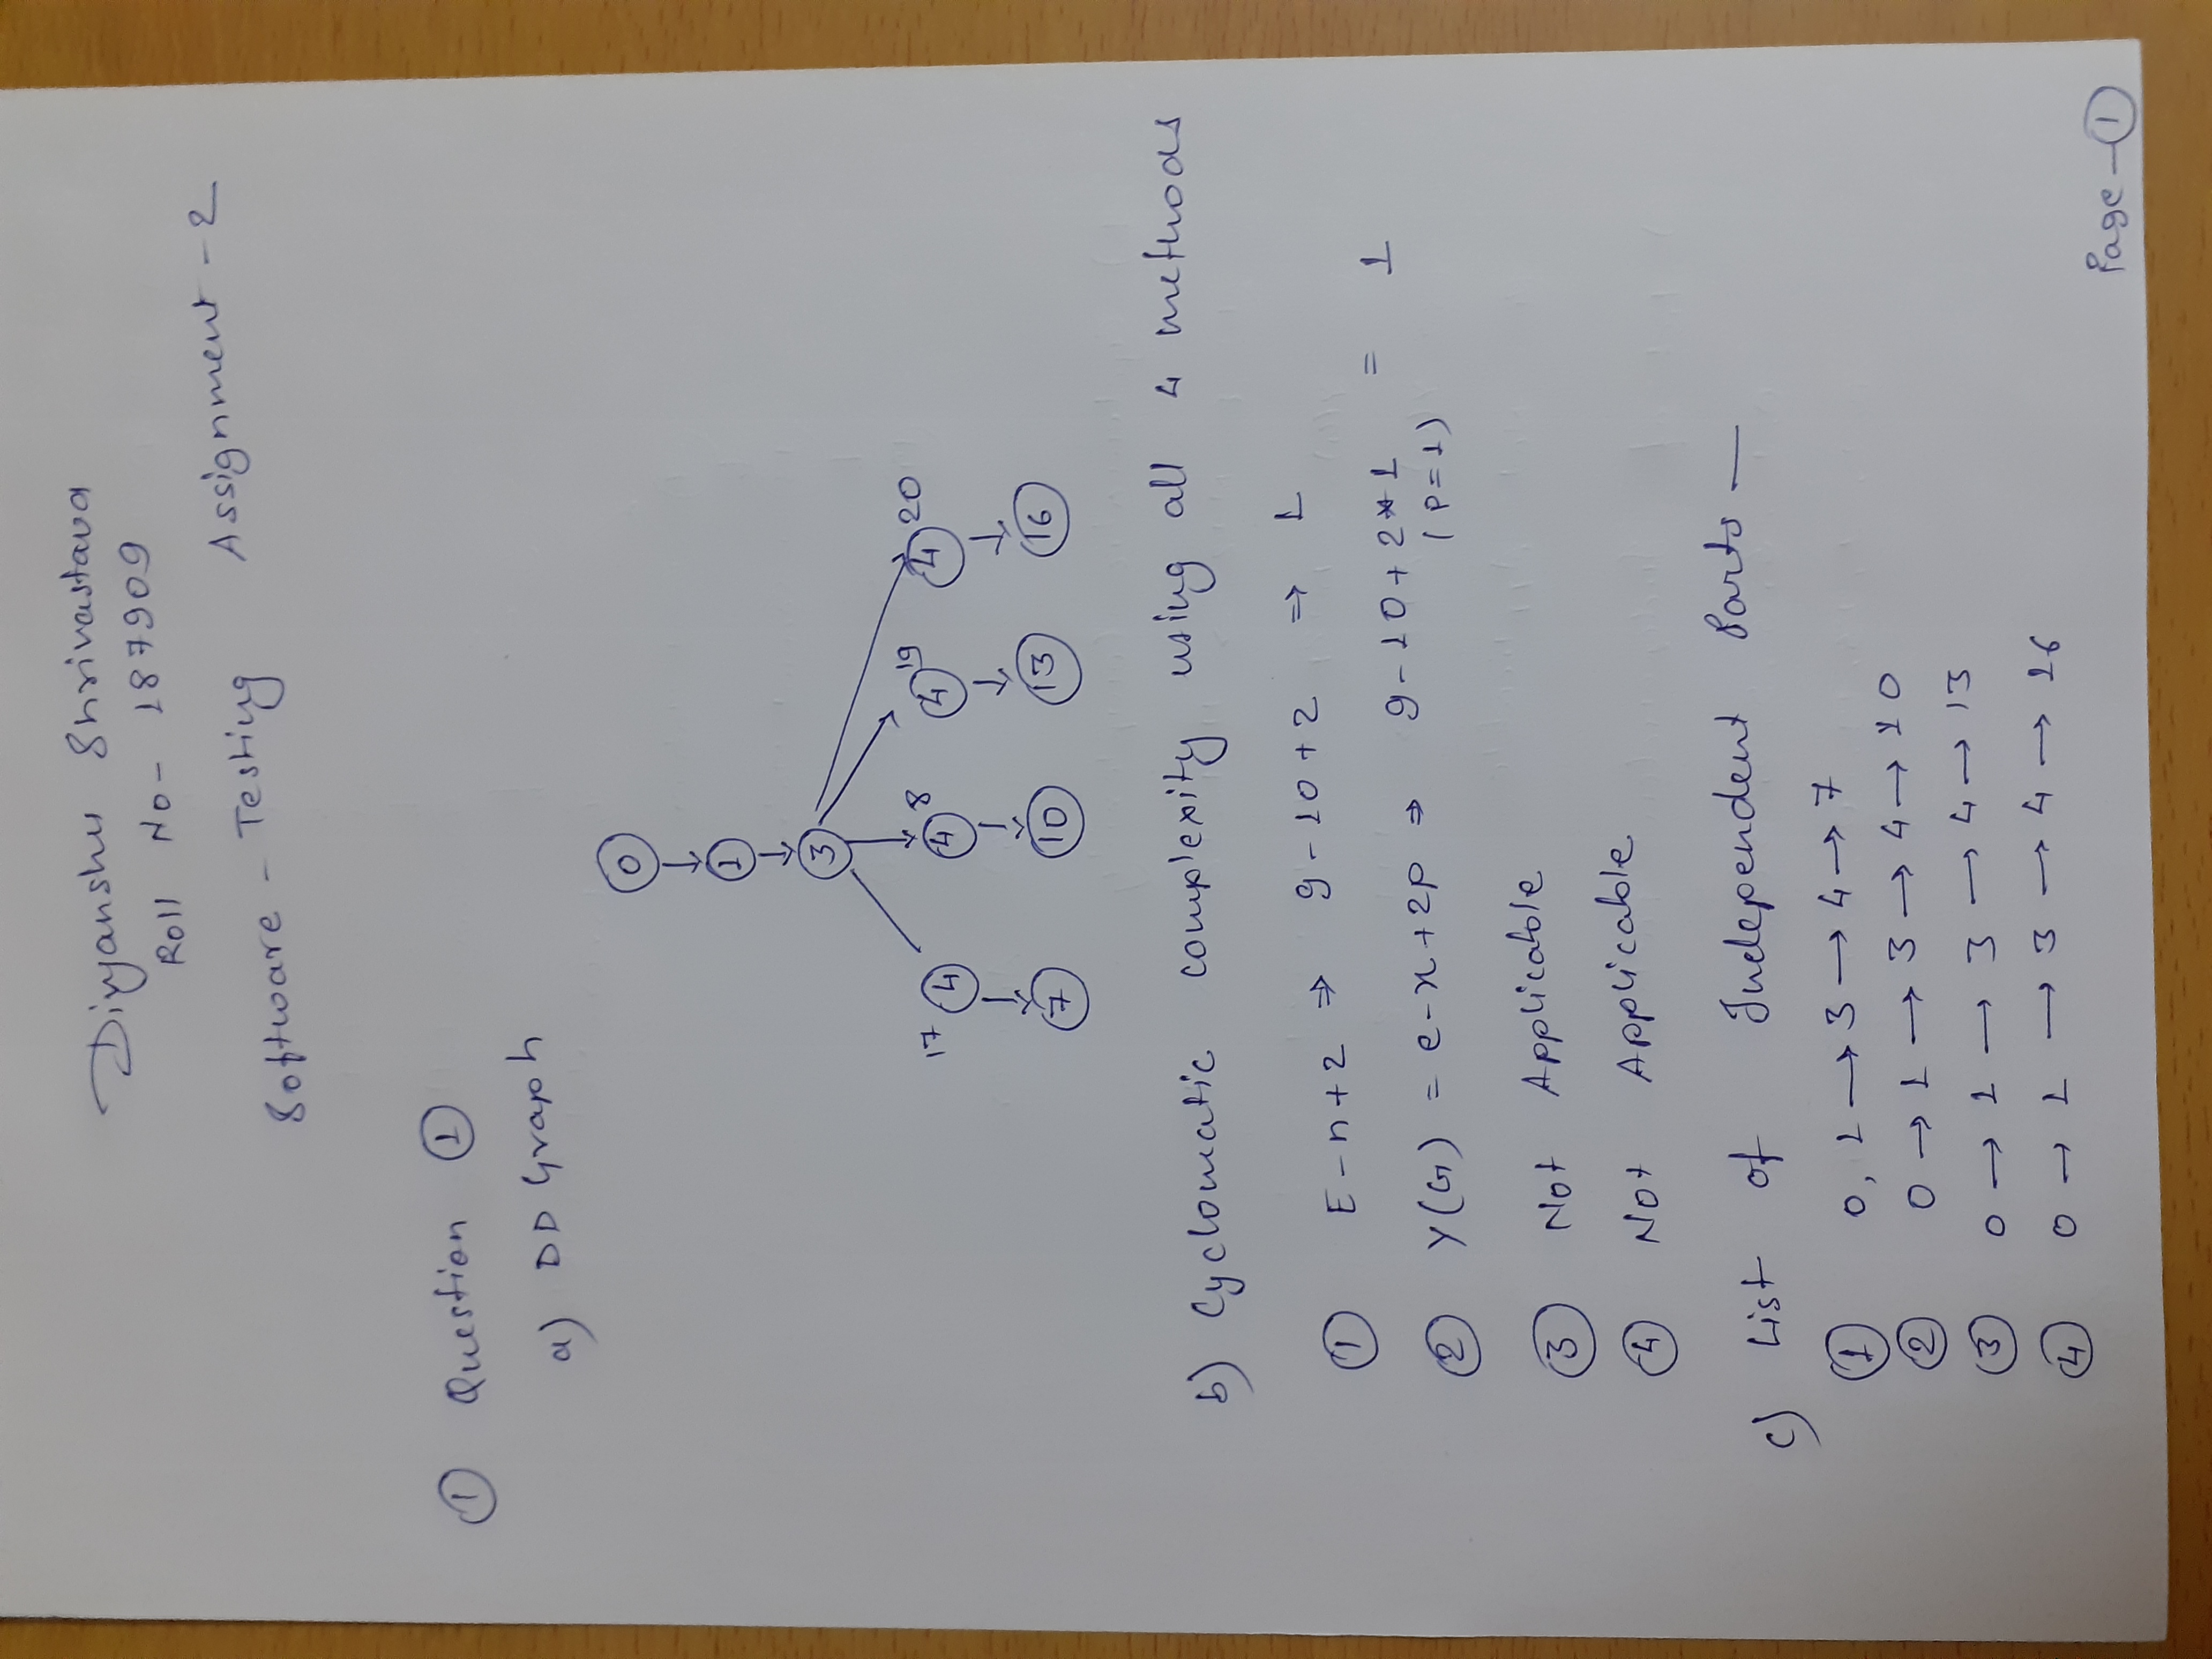 Divyanshu Shrivastava
Roll No- 187909
Software - Testing Assignment - 2
① Question ①
a) DD Graph
0
1
3
17 4 4 8 4 19 4 20
7 10 13 16
b) Cyclomatic complexity using all 4 methods
① E - n + 2 ⇒ 9 - 10 + 2 ⇒ 1
② Y(G) = e - n + 2p ⇒ 9 - 10 + 2 * 1 = 1
(P=1)
③ Not Applicable
④ Not Applicable
c) List of Independent Parts —
① 0, 1 → 3 → 4 → 7
② 0 → 1 → 3 → 4 → 10
③ 0 → 1 → 3 → 4 → 13
④ 0 → 1 → 3 → 4 → 16
Page - ①